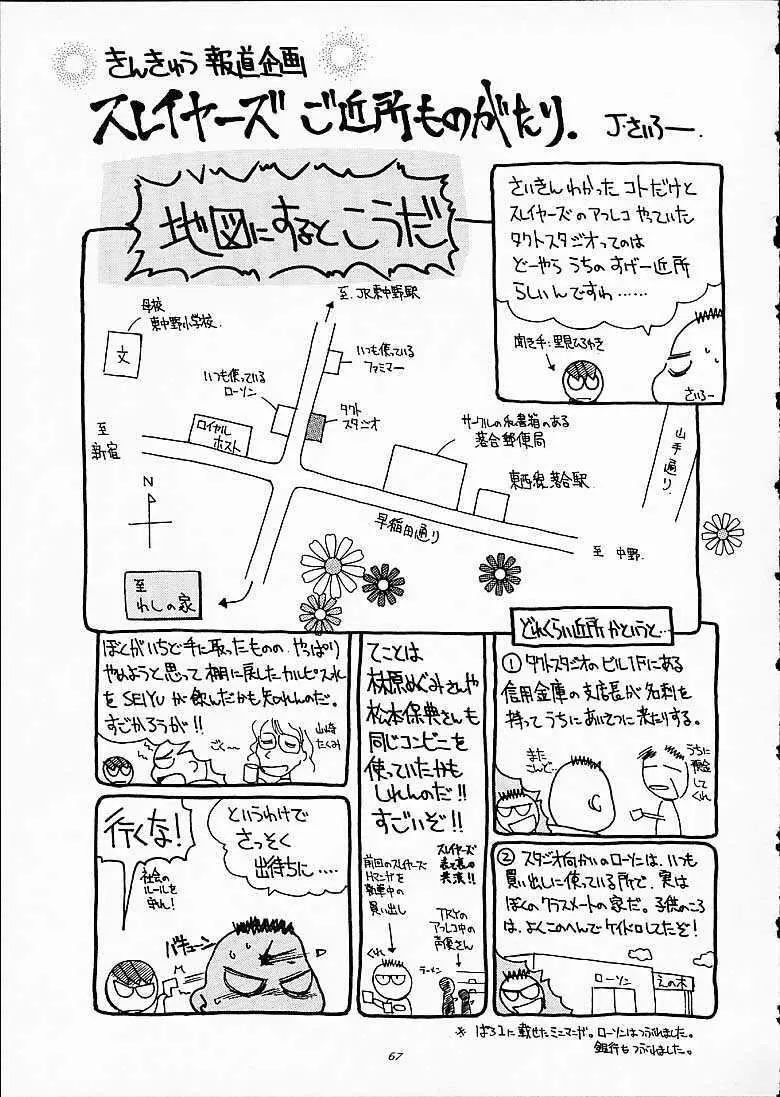 きんきゅう 報道企画
スレイヤーズ ご近所ものがたり。
J・さいろー.
地図にするとこうだ
さいきんわかった コトだけど
スレイヤーズのアフレコ やっていた
タクトスタジオってのは
どーやら うちの すげー近所
らしいんですわ……
聞き手:里見ひろゆき
さいろー
至.JR東中野駅
母校
東中野小学校.
文
いつも使っている
ファミマー
いつも使っている
ローソン
タクト
スタジオ
ロイヤル
ホスト
至
新宿
サークルの私書箱のある
落合郵便局
東西線落合駅
山手通り
早稲田通り
至 中野.
N
至
わしの家
どれくらい近所かというと…
① タクトスタジオのビル1Fにある
信用金庫の支店長が名刺を
持ってうちにあいさつに来たりする。
また
さんど…
うちに
預金
して
くれ
② スタジオ向かいのローソンは、いつも
買い出しに使っている所で、実は
ぼくのクラスメートの家だ。子供のころ
は、よくこのへんでケイドロしてたぞ!
ローソン
えの木
てことは
林原めぐみさんや
松本保典さんも
同じコンビニを
使っていたかも
しれんのだ!!
すごいぞ!!
スレイヤーズ
表と裏の
共演!!
前回のスレイヤーズ
Hマンガを
執筆中の
買い出し
TRYの
アフレコ中の
声優さん
ラーメン
ぼくがいちど手に取ったものの、やっぱり
やめようと思って棚に戻したカルピスれ
をSEIYUが飲んだかも知れんのだ。
すごかろうが!!
ごく〜
山崎
たくみ
というわけで
さっそく
出待ちに……
行くな!
社会の
ルールを
守れ!
バキューン
※ ぱろ1に載せたミニマンガ。ローソンはつぶれました。
銀行もつぶれました。
67